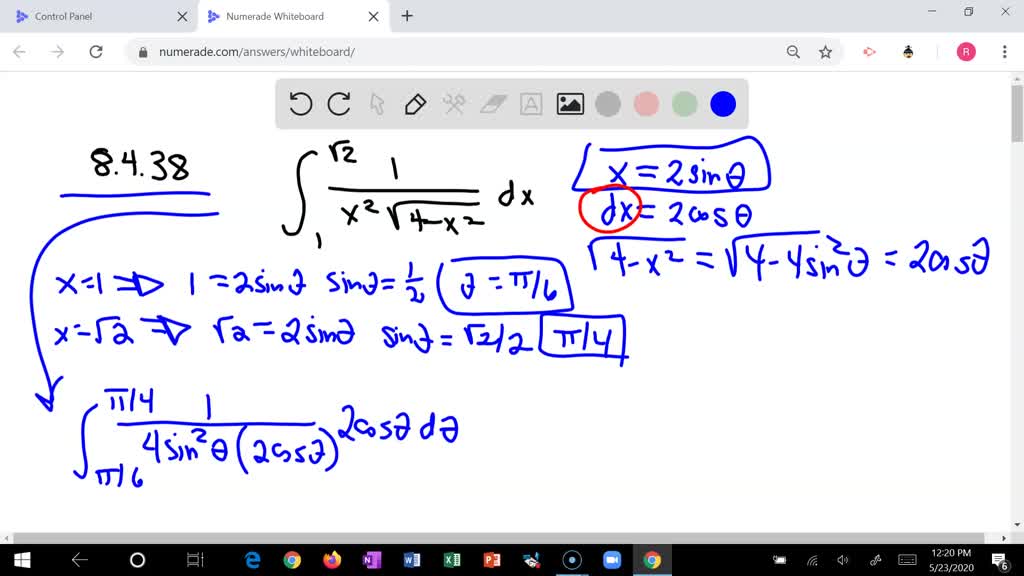 Control Panel
Numerade Whiteboard
numerade.com/answers/whiteboard/
R
A
8.4.38
∫₁^√2 1/(x²√(4-x²)) dx
x = 2 sin θ
dx = 2 cos θ
√(4-x²) = √(4-4sin²θ) = 2cosθ
x=1 ⇒ 1 = 2sinθ sinθ = 1/2 θ = π/6
x=√2 ⇒ √2 = 2sinθ sinθ = √2/2 π/4
∫_π/6^π/4 1/(4sin²θ(2cosθ)) 2cosθ dθ
12:20 PM
5/23/2020
6